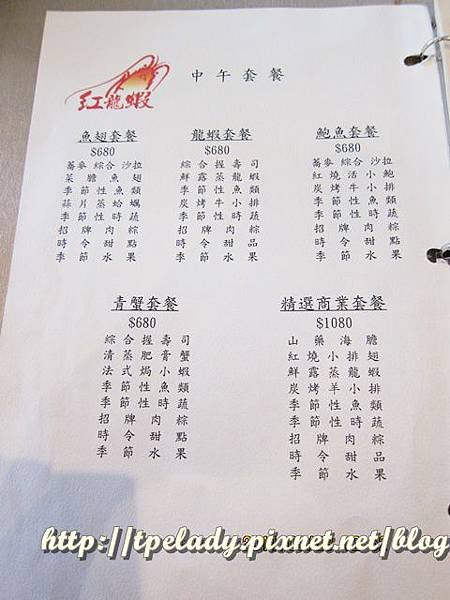 紅龍蝦
中午套餐
魚翅套餐
$680
蕎麥綜合沙拉
菜膽魚翅
季節性魚類
蒜片蒸蛤蠣
季節性時蔬
招牌肉粽
時令甜點
季節水果
龍蝦套餐
$680
綜合握壽司
鮮露蒸龍蝦
季節性魚類
炭烤牛小排
季節性時蔬
招牌肉粽
時令甜品
季節水果
鮑魚套餐
$680
蕎麥綜合沙拉
紅燒活小鮑
炭烤牛小排
季節性魚類
季節性時蔬
招牌肉粽
時令甜點
季節水果
青蟹套餐
$680
綜合握壽司
清蒸肥膏蟹
法式焗小龍蝦
季節性魚類
季節性時蔬
招牌肉粽
時令甜點
季節水果
精選商業套餐
$1080
山藥海膽
紅燒小排翅
鮮露蒸龍蝦
炭烤羊小排
季節性魚類
季節性時蔬
招牌肉粽
時令甜點
季節水果
http://tpelady.pixnet.net/blog